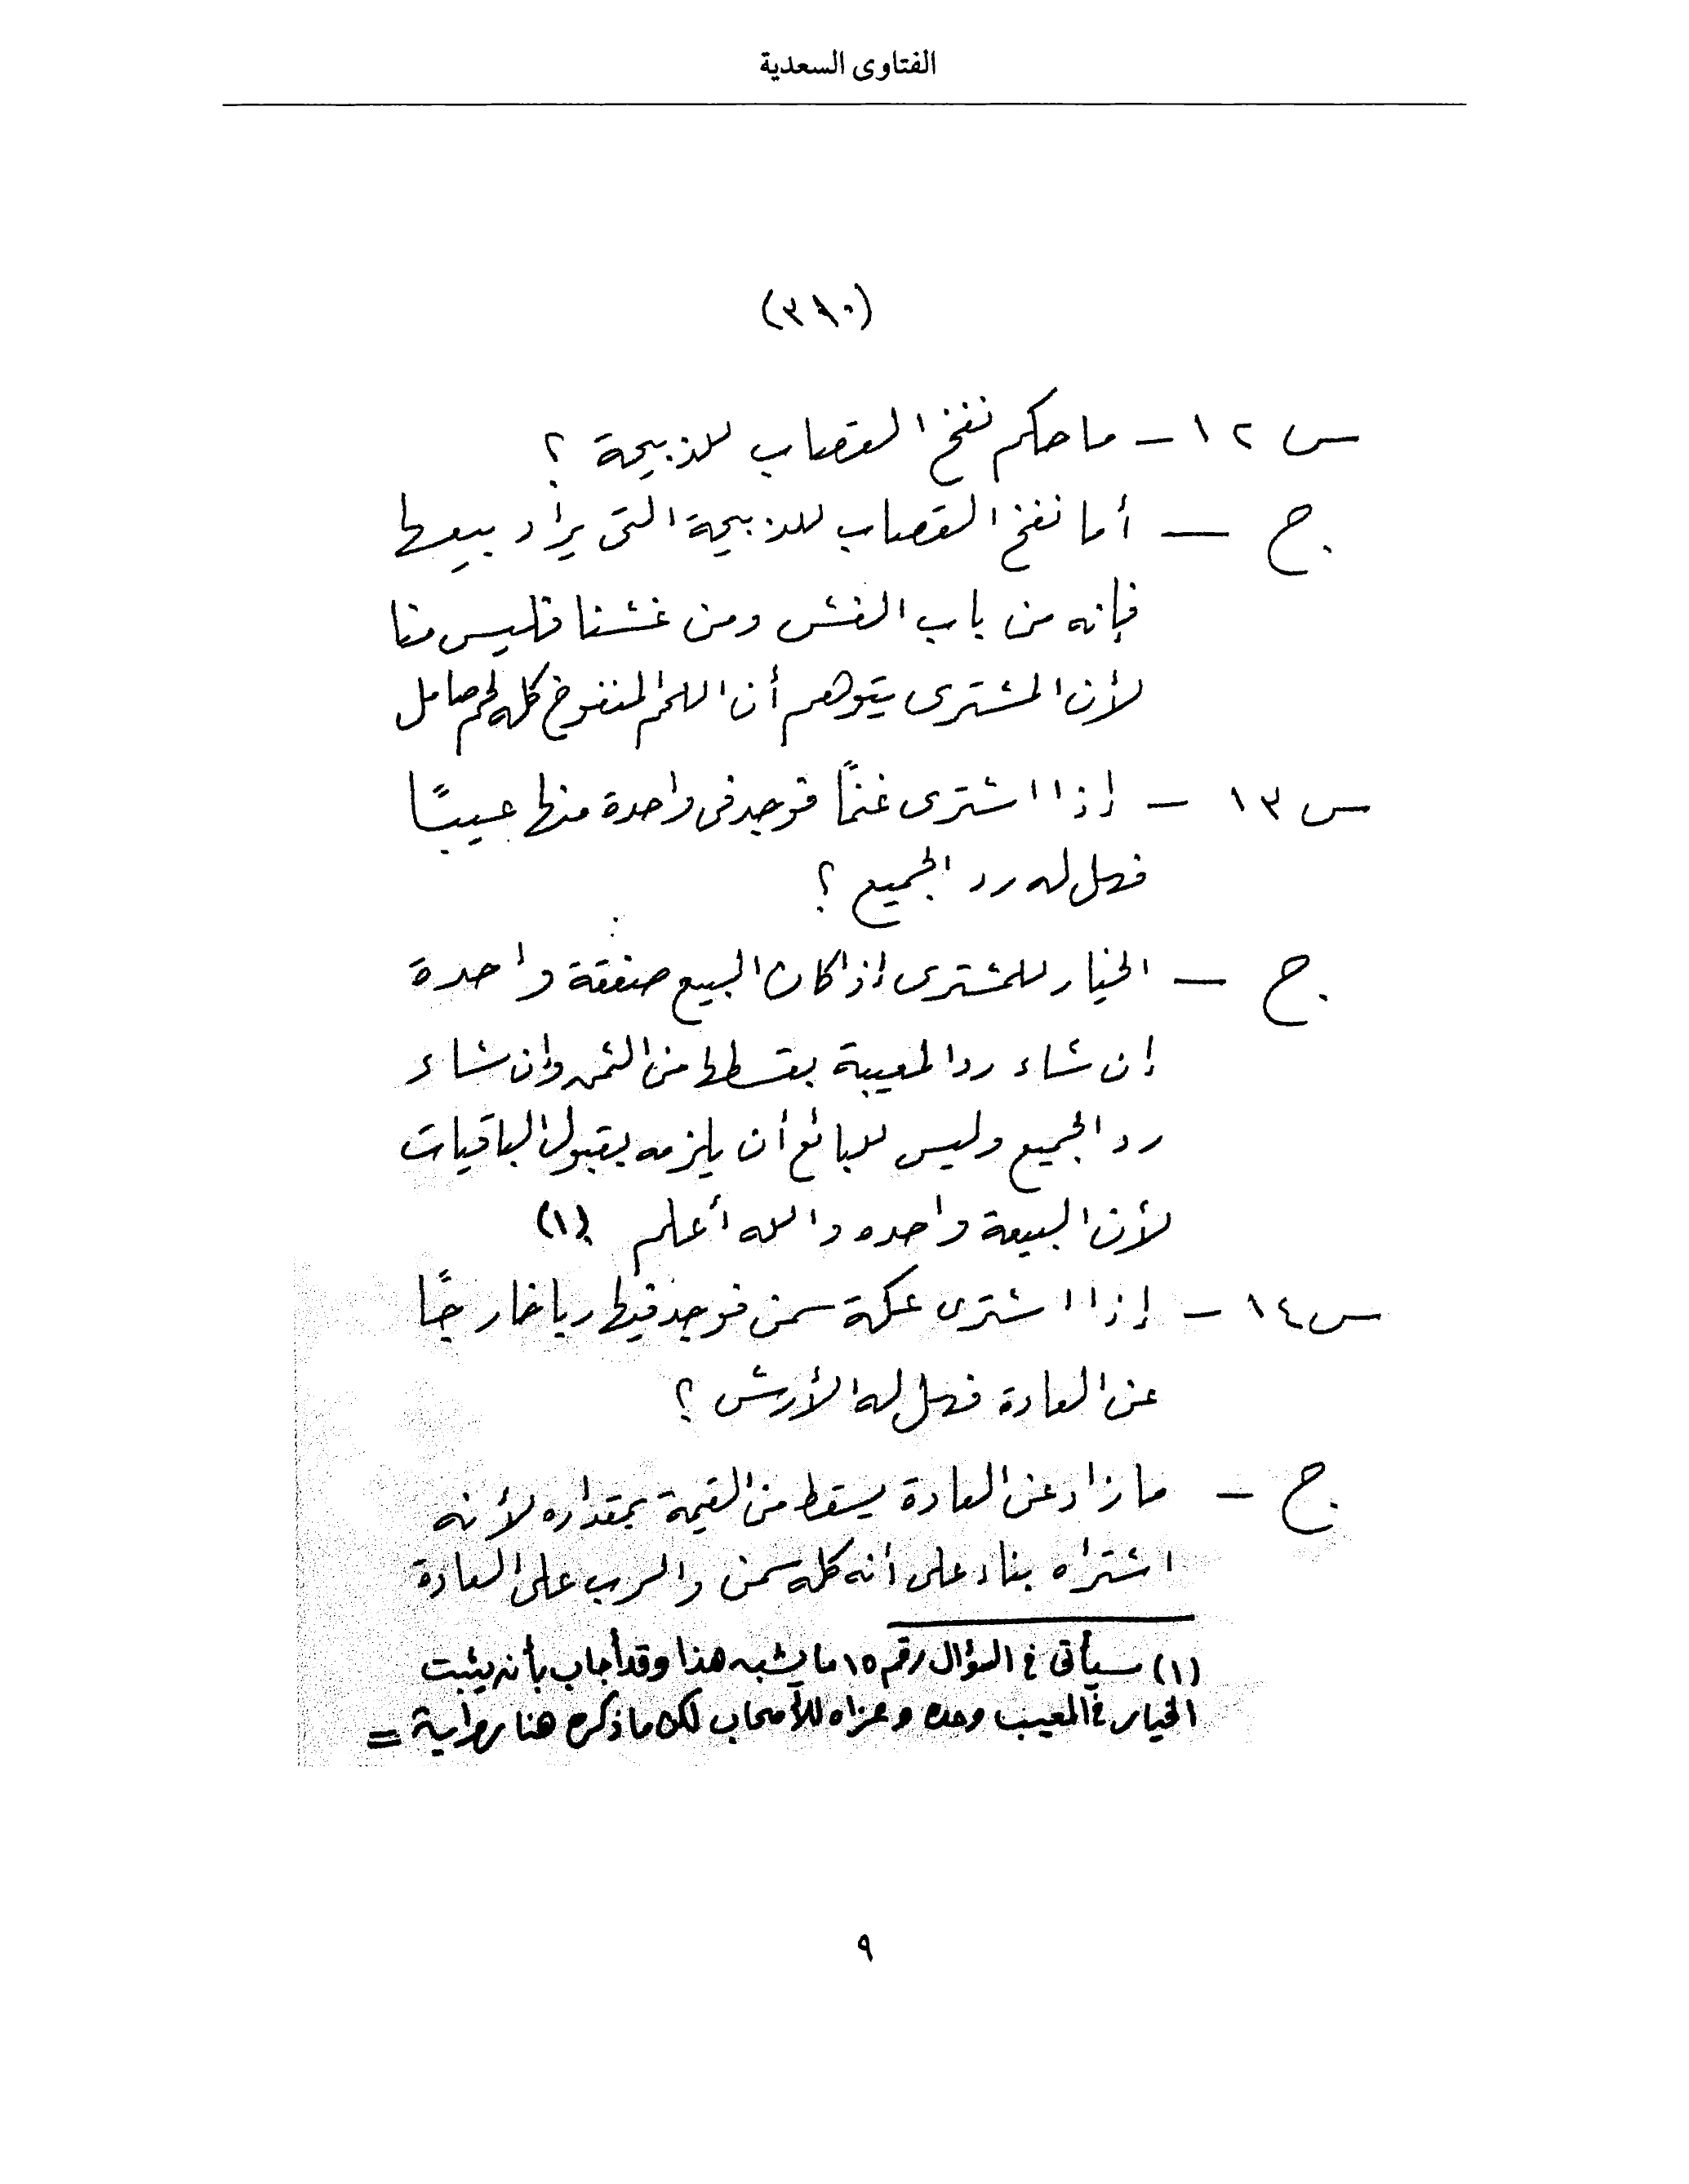 الفتاوى السعدية
(٣٨٠)
س ١٢ - ما حكم نفخ القصاب للذبيحة ؟
ج - أما نفخ القصاب للذبيحة التى يراد بيعها
فإنه من باب الغش ومن غشنا فليس منا
لأن المشترى يتوهم أن اللحم المنفوخ كله لحم حامل
س ١٣ - إذا اشترى غنمًا فوجد فى واحدة منها عيبًا
فهل له رد الجميع ؟
ج - الخيار للمشترى إذا كان البيع صفقة واحدة
إن شاء رد المعيبة بقسطها من الثمن وإن شاء
رد الجميع وليس للبائع أن يلزمه بقبول الباقيات
لأن البيعة واحده والله أعلم (١)
س ١٤ - إذا اشترى عكة سمن فوجد فيها ربا خارجًا
عن العادة فهل له الأرش ؟
ج - ما زاد عن العادة يسقط من القيمة بمقداره لأنه
اشتراه بناء على أنه كله سمن والرب على العادة
(١) سيأتى فى السؤال رقم ١٥ ما يشبه هذا وقد أجاب بأنه يثبت
الخيار فى المعيب وحده وعزاه للأصحاب لكن ما ذكره هنا رواية =
٩